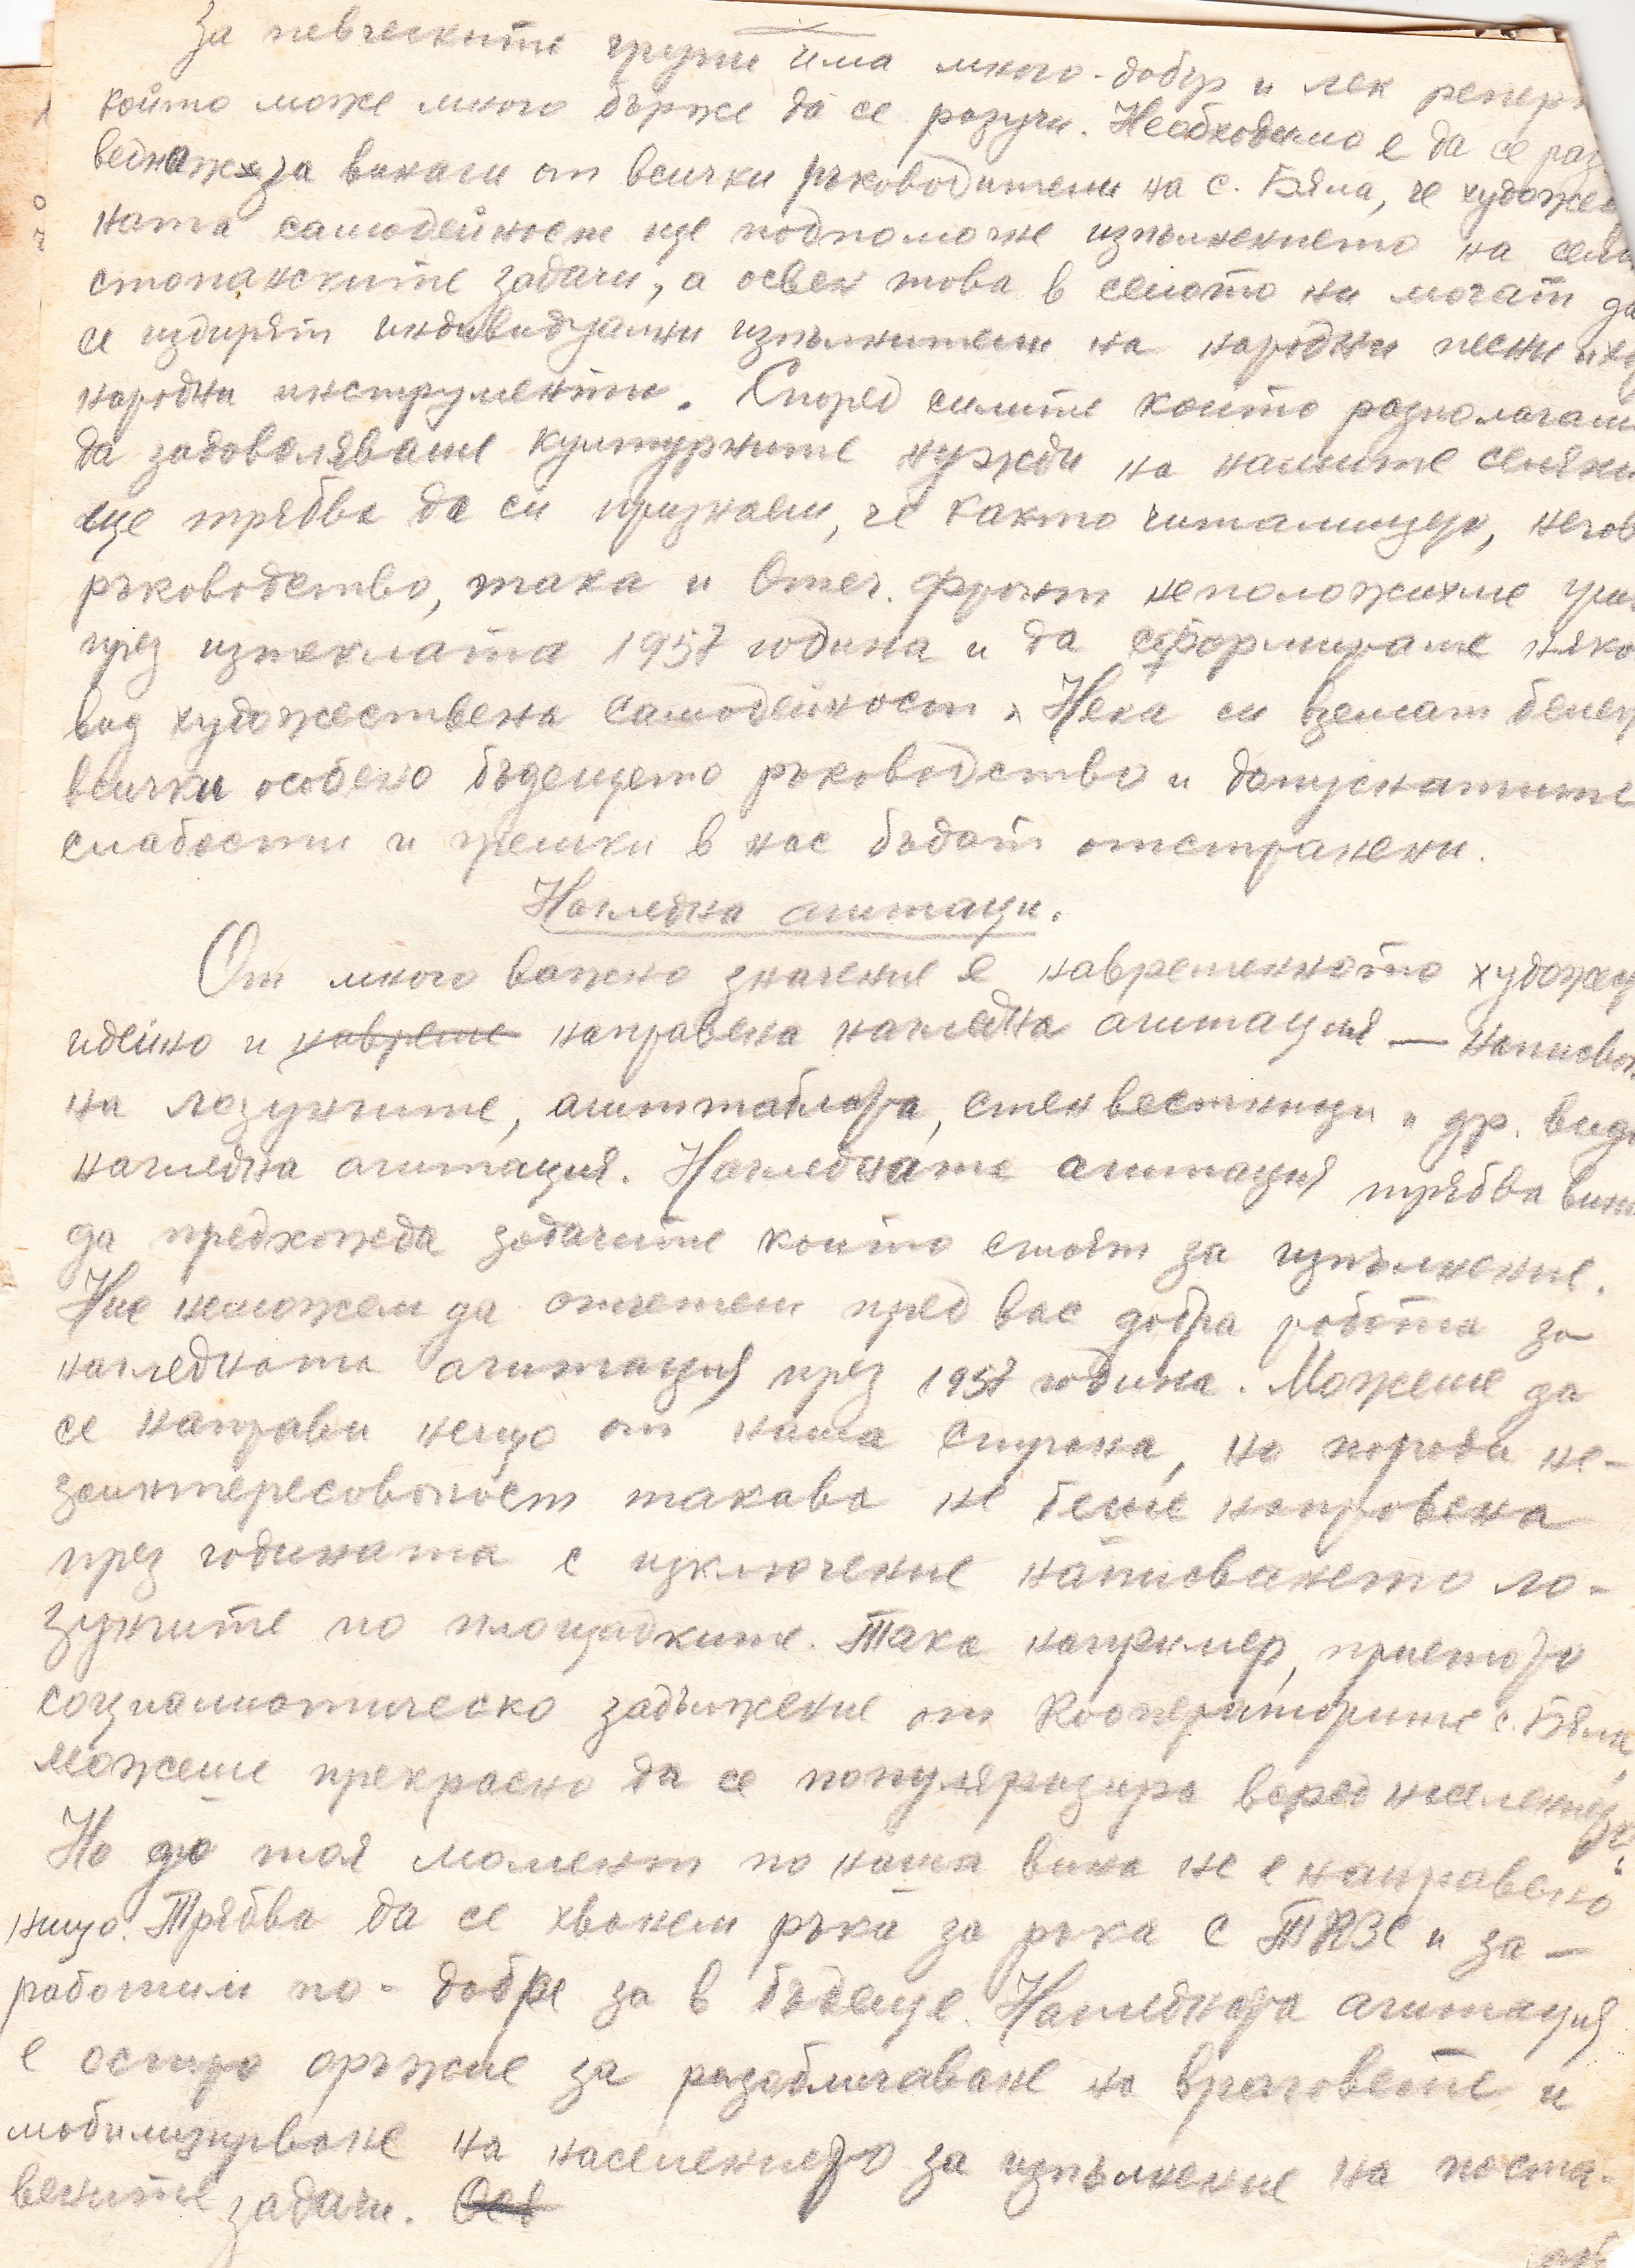 За певческите групи има много добър и лек репер
който може много бърже да се разучи. Необходимо е да се раз
веднаж за винаги от всички ръководители на с. Бяла, че художес
ната самодейност ще подпомогне изпълнението на селс
стопанските задачи, а освен това в селото ни могат да
се издирят индивидуални изпълнители на народни песни и
народни инструменти. Според силите които разполагаме
да задоволяваме културните нужди на нашите селяни
ще трябва да си признаем, че както читалището, негов
ръководство, така и Отеч. фронт неположихме гри
през изтеклата 1957 година и да сформираме няко
вид художествена самодейност. Нека си вземат бележ
всички особено бъдещето ръководство и допуснатите
слабости и грешки в нас бъдат отстранени.
Нагледна агитаци.
От много важно значение е навременната художес
идейно и навреме направена нагледна агитация — написван
на лозунгите, агиттабла, стенвестници и др. види
нагледна агитация. Нагледната агитация трябва вина
да предхожда задачите които стоят за изпълнение.
Ние неможем да отчетем пред вас добра работа за
нагледната агитация през 1957 година. Можеше да
се направи нещо от наша страна, но поради не-
заинтересованост такава не беше направена
през годината с изключение написването ло-
зунгите по площадките. Така например, приетото
социалистическо задължение от кооператорите с. Бяла,
можеше прекрасно да се популяризира всред населението.
Но до тоя момент по наша вина не е направено
нищо. Трябва да се хванем ръка за ръка с ТКЗС и за-
работим по-добре за в бъдеще. Нагледната агитация
е остро оръжие за разобличаване на враговете и
мобилизирване на населението за изпълнение на поста-
вените задачи. Осв